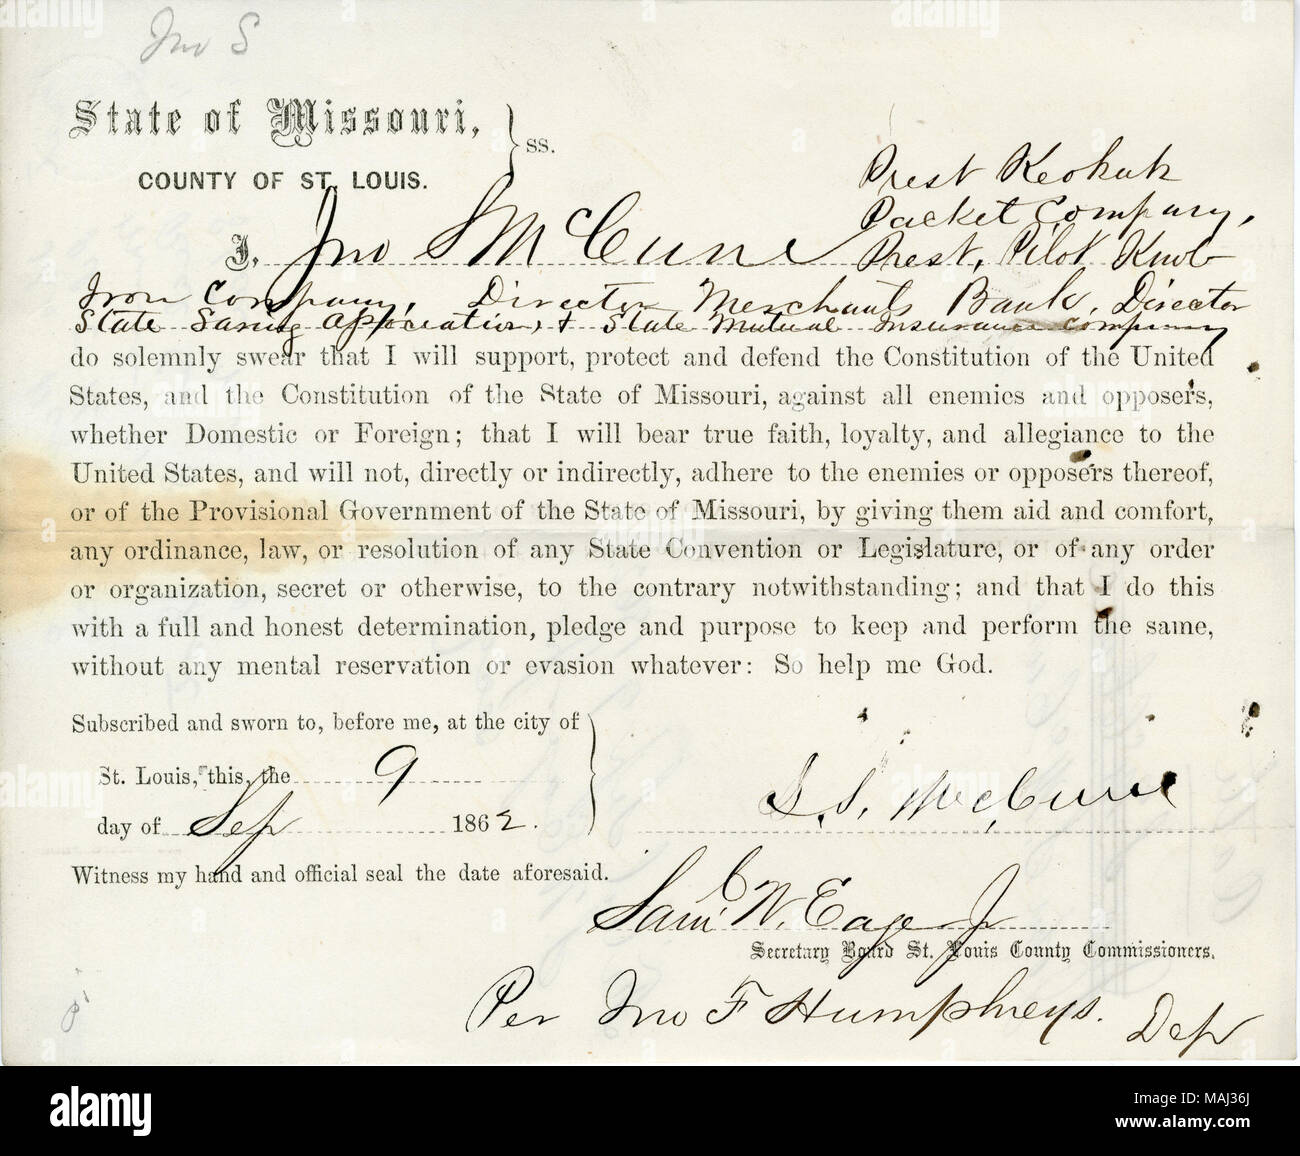 Jno S
State of Missouri,
COUNTY OF ST. LOUIS.
ss.
Prest Keokuk
Packet Company,
I, Jno S McCune Prest, Pilot Knob
Iron Company, Director Merchants Bank, Director
State Saving Association, & State Mutual Insurance Company
do solemnly swear that I will support, protect and defend the Constitution of the United
States, and the Constitution of the State of Missouri, against all enemies and opposers,
whether Domestic or Foreign; that I will bear true faith, loyalty, and allegiance to the
United States, and will not, directly or indirectly, adhere to the enemies or opposers thereof,
or of the Provisional Government of the State of Missouri, by giving them aid and comfort,
any ordinance, law, or resolution of any State Convention or Legislature, or of any order
or organization, secret or otherwise, to the contrary notwithstanding; and that I do this
with a full and honest determination, pledge and purpose to keep and perform the same,
without any mental reservation or evasion whatever: So help me God.
Subscribed and sworn to, before me, at the city of
St. Louis, this, the 9
day of Sep 1862.
J. S. McCune
Witness my hand and official seal the date aforesaid.
Saml. W. Eager Jr
Secretary Board St. Louis County Commissioners.
Per Jno F Humphreys. Dep
alamy
Image ID: MAJ36J
www.alamy.com